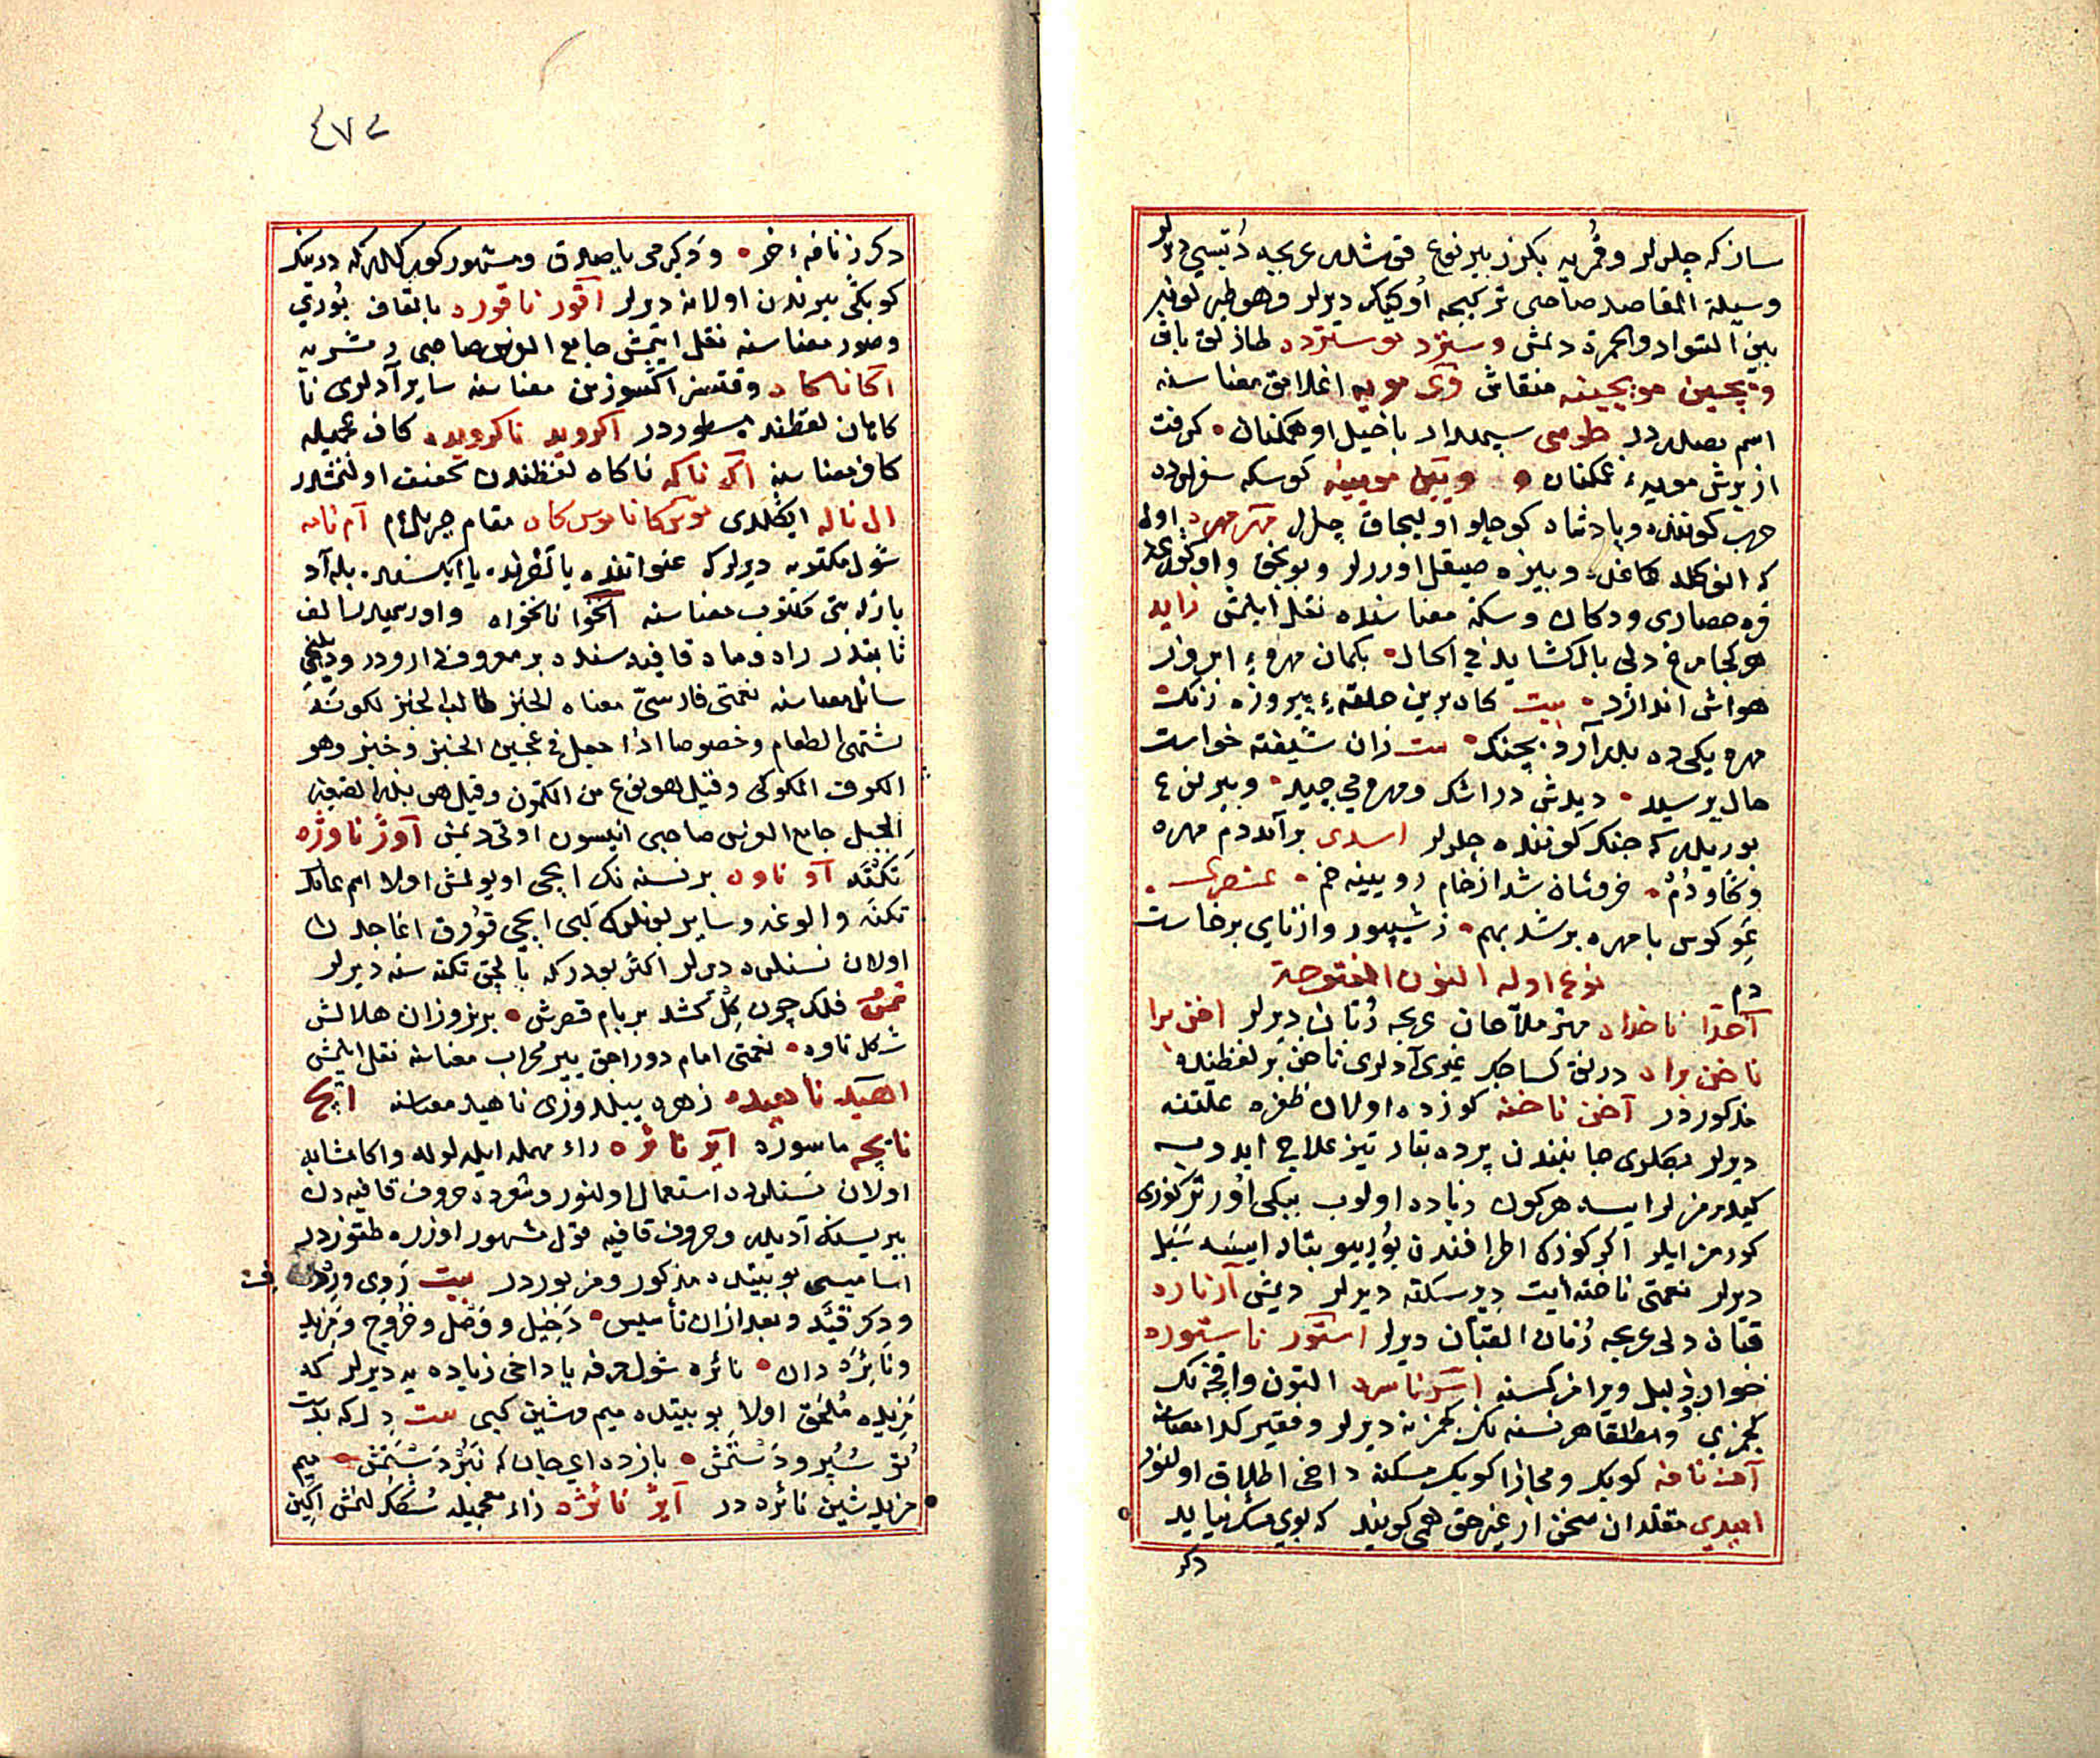 سازکه چلرلر وقُمری‌یه بکزر بیر نوع قوشدر عربجه دُبسی دیرلر
وسیلة المقاصد صاحبی ترکیجه اُوکیک دیرلر وهو طیر لونه
بین السّواد والحمرة دیمش وستزد
وپچین موپچینه منقاش وی مویه اغلامق معناسنه
اسم مصدردر طوسی سپهدار با خیل او همکنان کرفت
از برش مویهٔ همکنان و موبینه کوسکه
حرب کوننده وپادشاه کوچلو اولیجاق چلل مهر مهره اول
که انوکله کاغد وبیزه صیقل اوررلر وبونجق
قره حصاری ودکان وسکه معناسنده نقل ایلمش زاید
هرکجا مرغ دلی بال کشاید فی الحال بکمان مهرهٔ ابروز
هواش اندازد بیت کاه برین حلقهٔ پیروزه رنک
مهره یکی ده بدرآرد بچنک بیت زان شیفته خواست
حال پرسید دیدش در اشک ومهره می چید وبیر نوع
بوریدر که جنک کوننده چلرلر اسدی برآمد دم مهره
وکاودُم خروشان شد از خام رویینه خم عنصری
غو کوس با مهره برشد بهم ز شیپور واز نای برخاست
دم
نوع اول النون المفتوحة
آخدا ناخداه مهتر ملاّحان عربجه رُبّان دیرلر اخن برا
ناخن براه درنق کساجک غیری آدلری ناخن بر لفظنده
مذکوردر آخن ناخنه کوزده اولان ظفره علّتنه
دیرلر بکلری جانبندن پرده بتار تیز علاج ایدویسه
کیدرمزلر ایسه هرکون زیاده اولوب ببکی اورتر کوزی
کورمز ایلر اکر کوزک اطرافندن بورییو بتار ایسه سَبَل
دیرلر نعمتی ناخنه ایت دیرسکنه دیرلر دیمش آر نارد
قبّان دلی عربجه رُمان القبّان دیرلر استور ناستوره
خوار وذلیل ویرامز کسنه اسر ناسره التون واقچه نک
کمزی ومطلقا هر نسنه نک کمزنه دیرلر وفقیر کدا معناسنه
آف نافه کوبک ومجازا کوبک مسکنه داخی اطلاق اولنور
امیدی مقلّدان سخن از غیر حق همی کویند که بوی مشک نیاید
دکر

٤٧٢
دکر ز نافهٔ خر ودکرمی یاصدق ومشهور کوبکلرکه درینک
کوبکی یرندن اولانه دیرلر آقور ناقوره بالقاف بُوری
وصور معناسنه نقل ایتمش جامع الفرس صاحبی دمشریه
آکانا کاه وقتسز اکسوزین معناسنه سایر آدلری نا
کاهان لفظنده مسطوردر اکروید ناکرویده کاف عجمیله
کافر معناسنه اکه ناکه ناکاه لفظندن تخفیف اولنمشدر
ال ناله ایکلدی موس کا ناموس کاه مقام جبریل ٤م آم نامه
شول مکتوبه دیرلر که عنواننده یا تغرانده یا ایکیسنده بله آد
یازله بتی مکتوب معناسنه اکخوا ناکخواه واو رسمیدر سالف
ثابتدر راه وماه قافیه سنده بر معروف داروددر ودیلنجی
سائل معناسنه نعمتی فارسیّ معناه الخبز طالب الخبز لکونه
یشتهی الطعام وخصوصا اذا جعل فی عجین الخبز وخبز وهو
الکموف الملوکی وقیل هو نوع من الکمّون وقیل هو بذر الصنوبر
الجبل جامع الفرس صاحبی انیسون اوتی دیمش آوژ ناوژه
تکنه آو ناوه بر نسنه نک ایچی اویولمش اولا اسم عامدر
تکنه والوغه وسایر بونلرک کبی ایچی قوُوق اغاجدن
اولان نسنلره دیرلر اکثر بودر که بالچق تکنه سنه دیرلر
شمس فلک چون کل کشد بر بام قصرش بریزوزان هلالش
شکل ناوه نعمتی امام دوراجق ییر محراب معناسنه نقل ایلمش
اهید ناهیده زهره ییلدوزی ناهید معناسنه ایچ
نایچه ماسوره آیر نائره راء مهمله ایله لوله واکا مشابه
اولان نسنلرده استعمال اولنور وشعرده حروف قافیه دن
بیریسنک آدیدر وحروف قافیه قول مشهور اوزره طقوزدر
اسامیسی بو بیتده مذکور ومزبوردر بیت رَوی ورِدف
ودکر قید وبعد ازان تأسیس دَخیل ووَصل وخُروج ومَزید
ونَائِرَه دان نائره شول حرفه یا داخی زیاده یه دیرلر که
مزیده مُلحَق اولا بو بیتده میم وشین کبی بیت دل که بدت
تو سُپُردَستَمَش باز ده ای جان که نَبُردَستَمَش میم
مزید شین نائره در آیژ نائژه زاء معجمیله